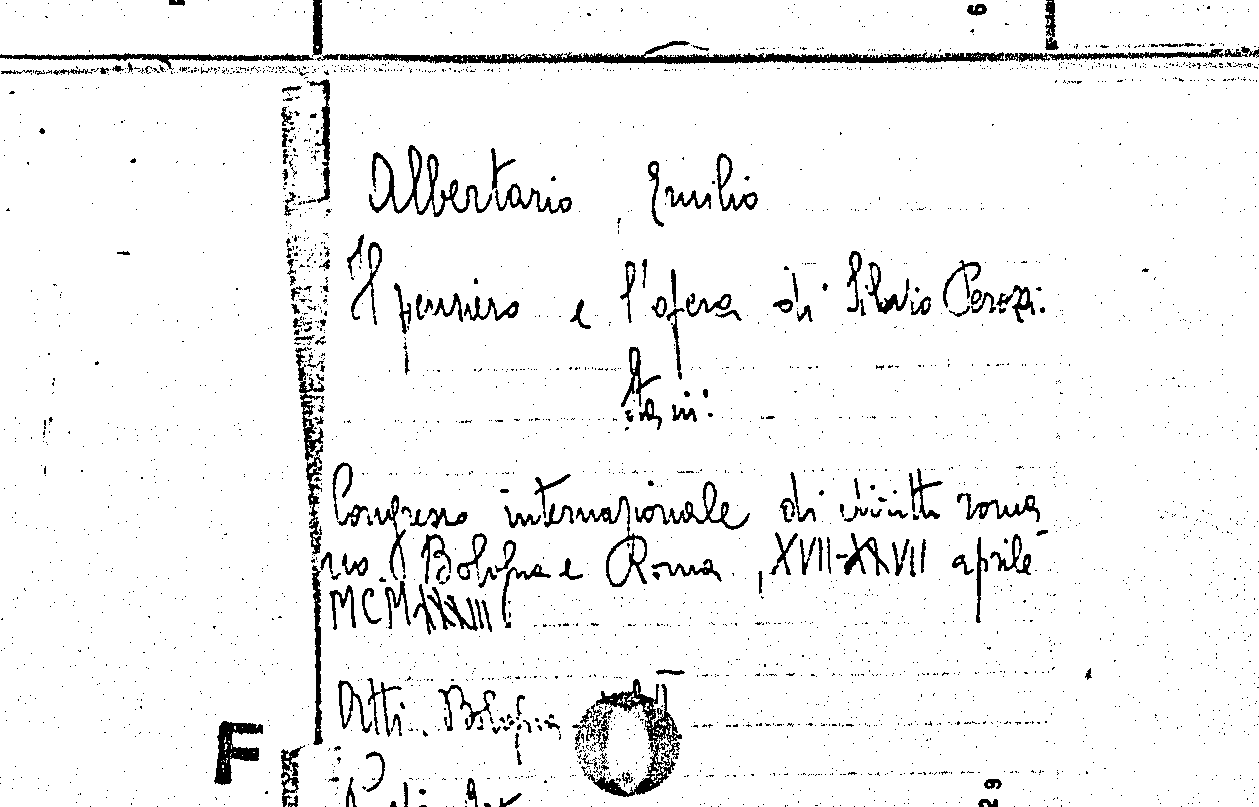 Albertario, Emilio
Il pensiero e l'opera di Silvio Perozzi.
In:
Congresso internazionale di diritto roma
no. Bologna e Roma, XVII-XXVII aprile
MCMXXXIII.
Atti. Bologna
F
6
29